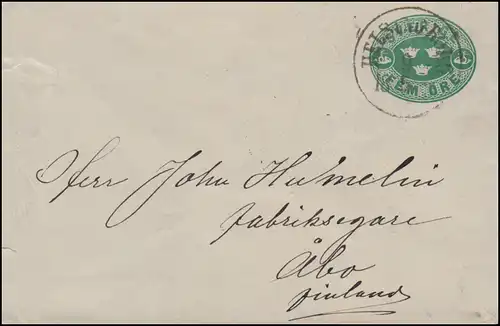 FEM ÖRE
Herr John Humelin
fabriksegare
Åbo
Finland